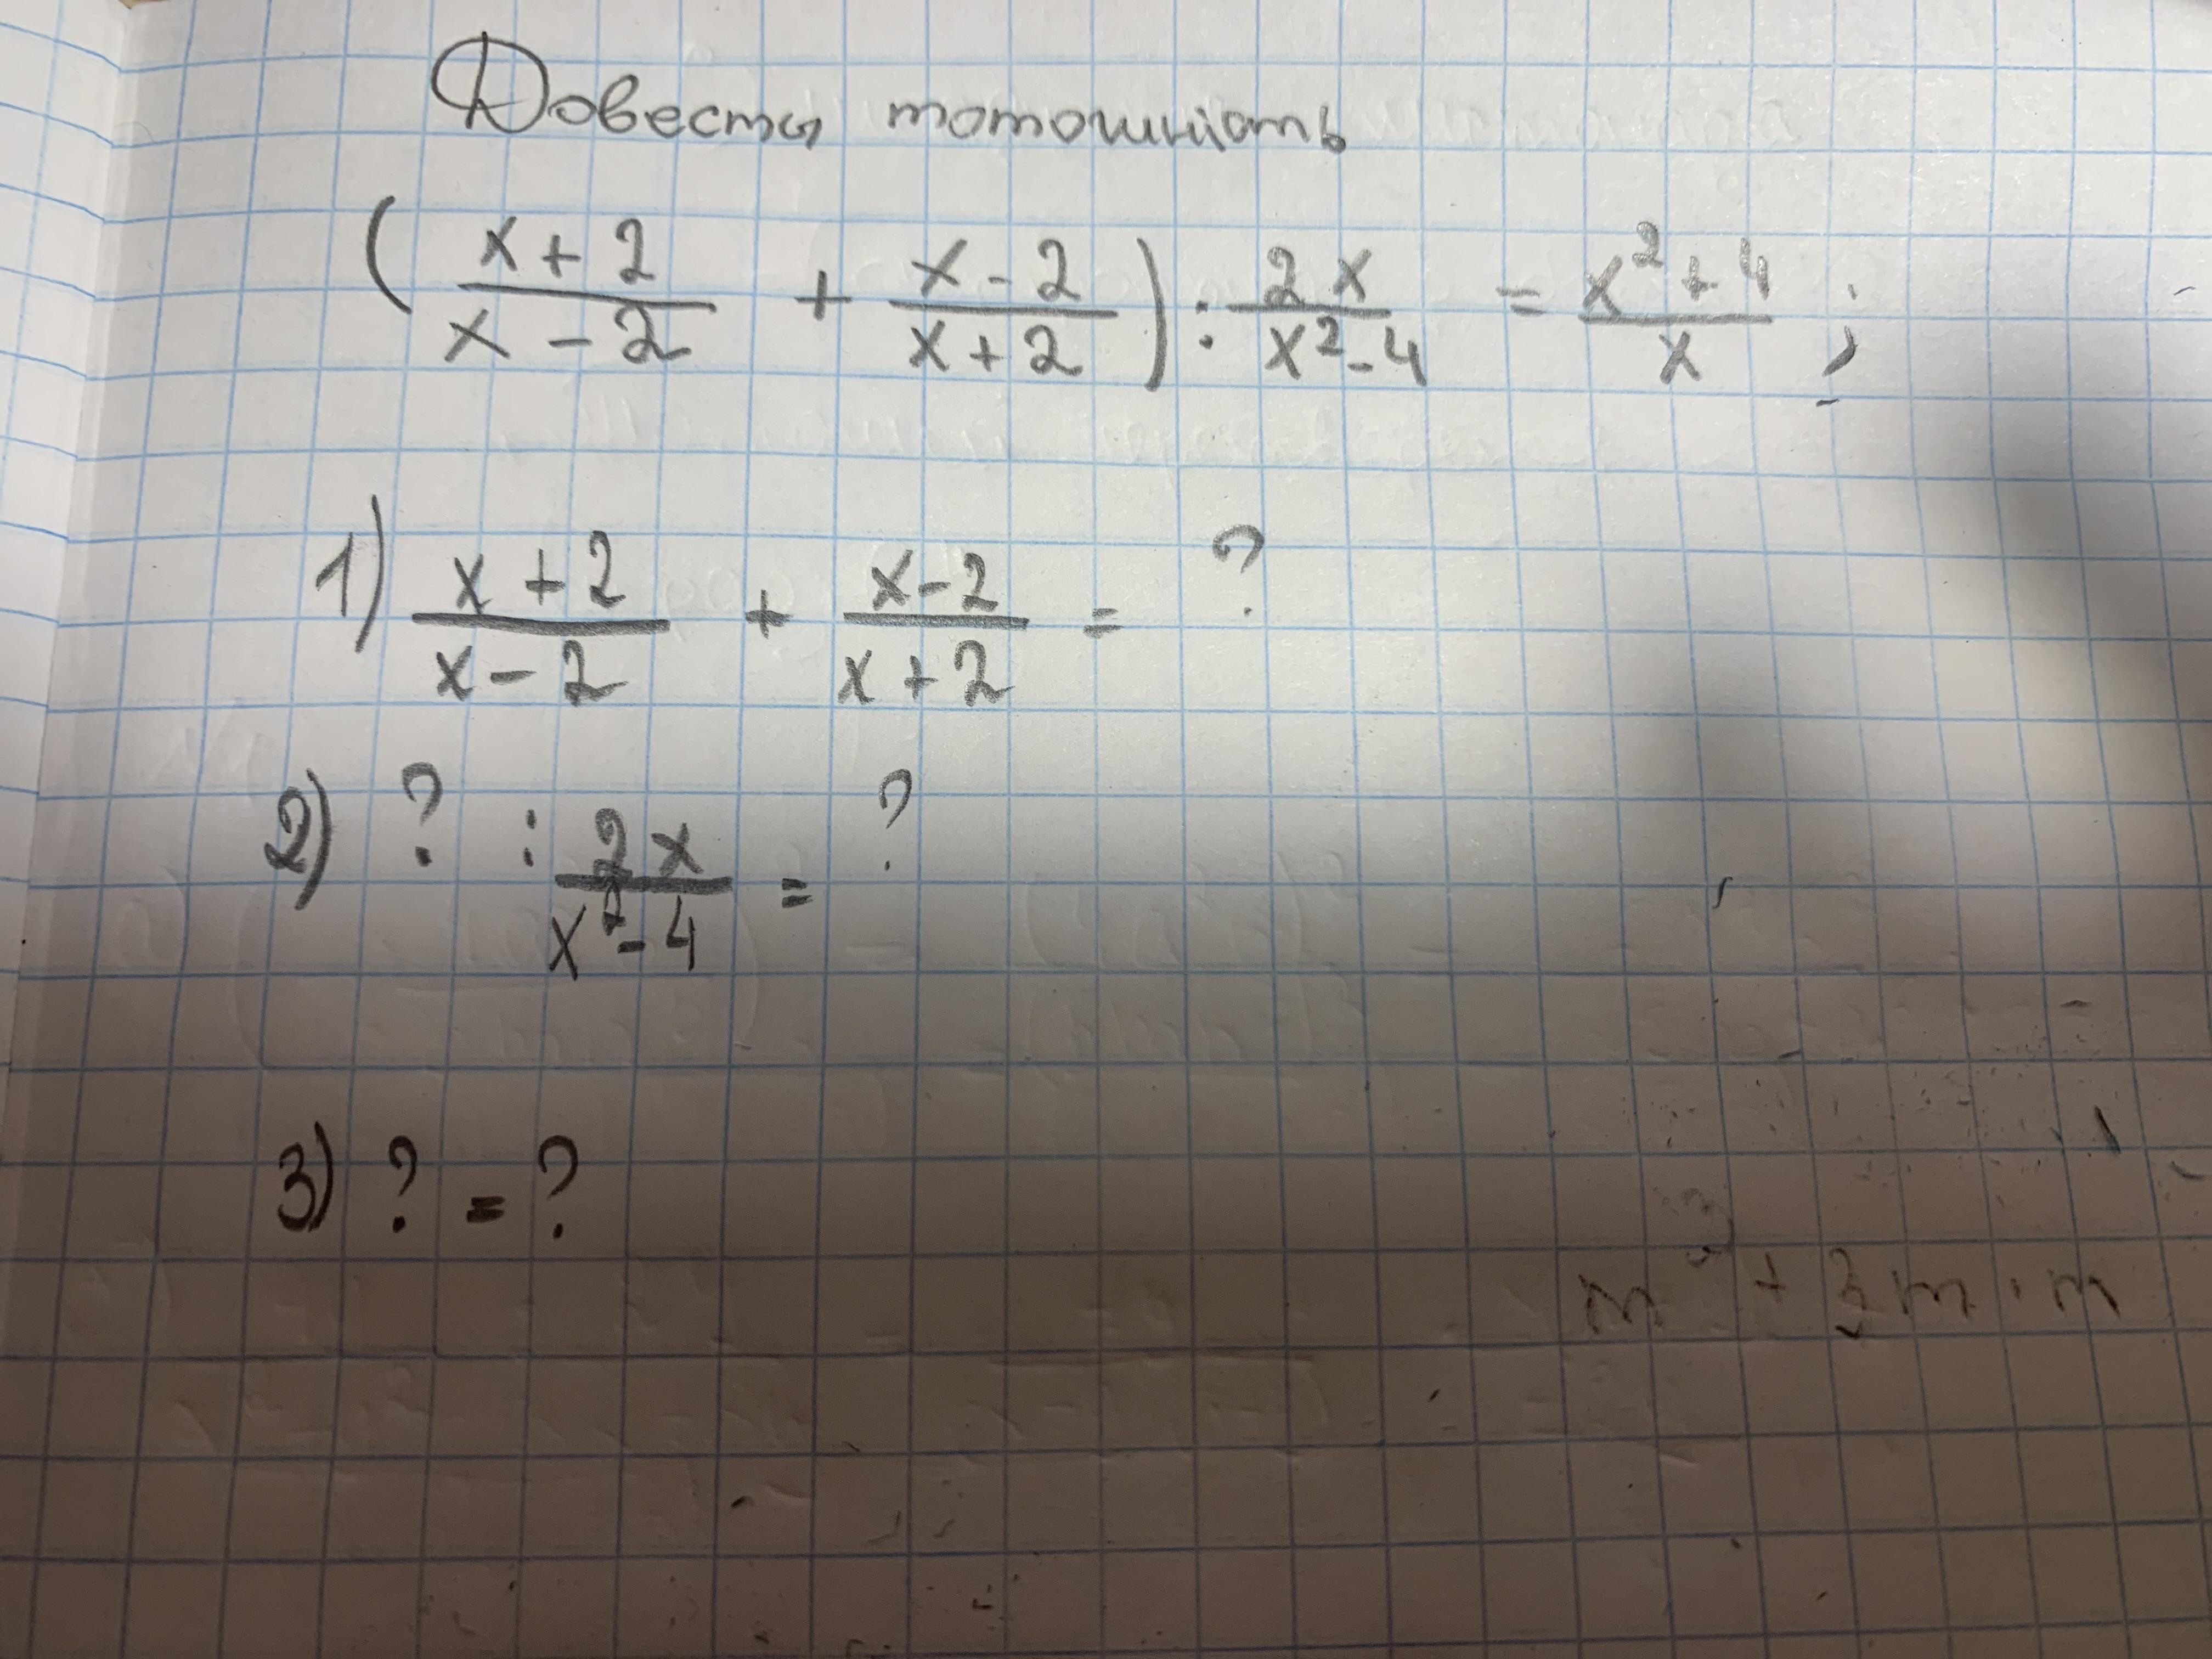 Довести тотожність
(x+2/x-2 + x-2/x+2) : 2x/x²-4 = x²+4/x ;
1) x+2/x-2 + x-2/x+2 = ?
2) ? : 2x/x²-4 = ?
3) ? = ?